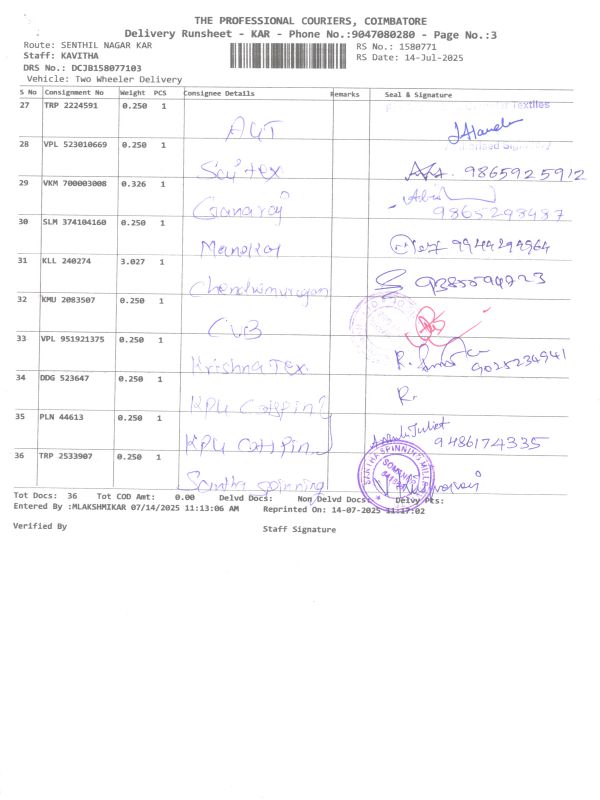 THE PROFESSIONAL COURIERS, COIMBATORE
Delivery Runsheet - KAR - Phone No.:9047080280 - Page No.:3
Route: SENTHIL NAGAR KAR
RS No.: 1580771
Staff: KAVITHA
RS Date: 14-Jul-2025
DRS No.: DCJB158077103
Vehicle: Two Wheeler Delivery
S No Consignment No Weight PCS Consignee Details Remarks Seal & Signature
27 TRP 2224591 0.250 1 Textiles
28 VPL 523010669 0.250 1 9865925912
29 VKM 700003008 0.326 1 9865298487
30 SLM 374104160 0.250 1 9944294964
31 KLL 240274 3.027 1
32 KMU 2083507 0.250 1 CUB
33 VPL 951921375 0.250 1 Krishna Tex. R. 9025234941
34 DDG 523647 0.250 1 KPU R.
35 PLN 44613 0.250 1 KPU Juliet 9486174335
36 TRP 2533907 0.250 1 spinning
Tot Docs: 36 Tot COD Amt: 0.00 Delvd Docs: Non Delvd Docs: Delvy Pts:
Entered By :MLAKSHMIKAR 07/14/2025 11:13:06 AM Reprinted On: 14-07-2025 11:17:02
Verified By
Staff Signature